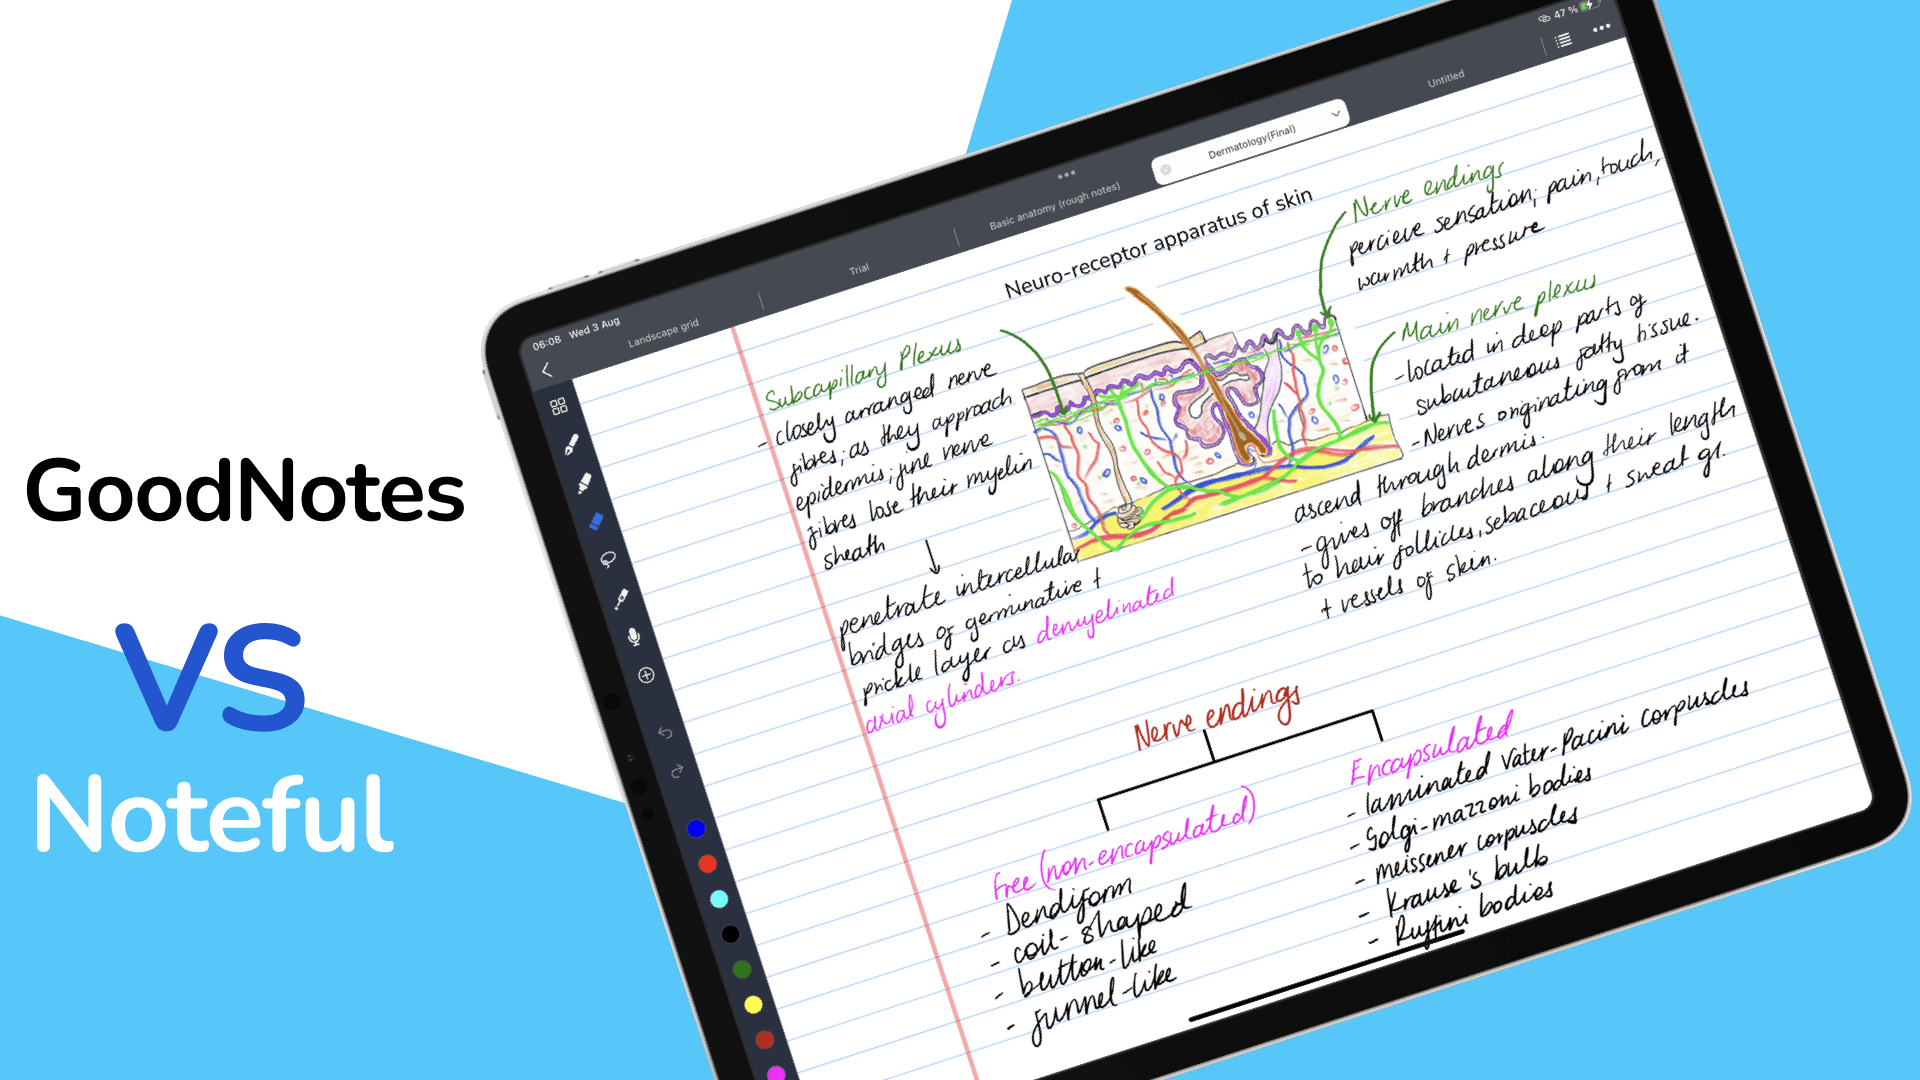 GoodNotes
VS
Noteful
06:08 Wed 3 Aug
47 %
Landscape grid
Trial
Basic anatomy (rough notes)
Dermatology(Final)
Untitled
Neuro-receptor apparatus of skin
Subcapillary Plexus
- closely arranged nerve
fibres; as they approach
epidermis; fine nerve
fibres lose their myelin
sheath
↓
penetrate intercellular
bridges of germinative +
prickle layer as demyelinated
axial cylinders.
Nerve endings
percieve sensation; pain, touch,
warmth + pressure
Main nerve plexus
- located in deep parts of
subcutaneous fatty tissue.
- Nerves originating from it
ascend through dermis.
- gives off branches along their length
to hair follicles, sebaceous + sweat gl.
+ vessels of skin.
Nerve endings
Free (non-encapsulated)
- Dendiform
- coil-shaped
- button-like
- funnel-like
Encapsulated
- laminated Vater-Pacini corpuscles
- Golgi-mazzoni bodies
- meissener corpuscles
- Krause's bulb
- Ruffini bodies